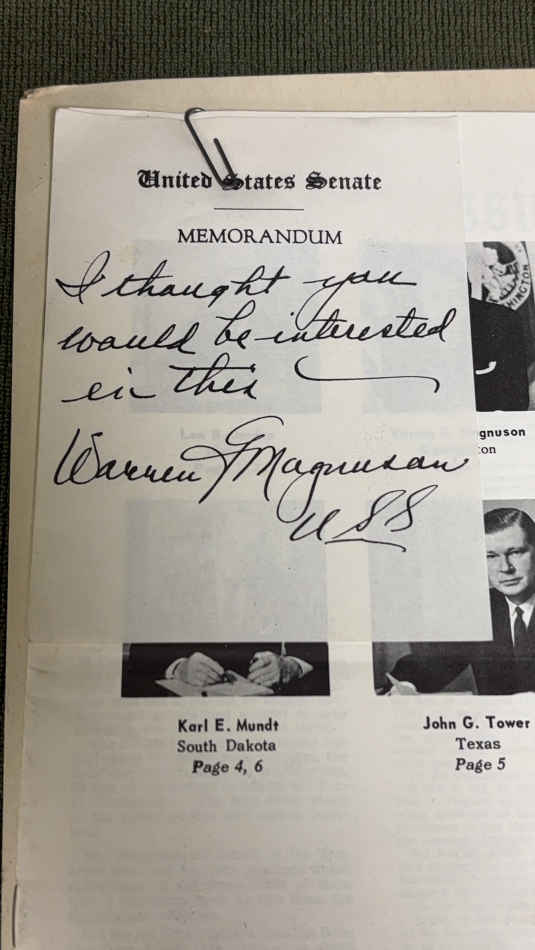 United States Senate
MEMORANDUM
I thought you
would be interested
in this
Warren G Magnuson
USS
INGTON
gnuson
ton
Karl E. Mundt
South Dakota
Page 4, 6
John G. Tower
Texas
Page 5